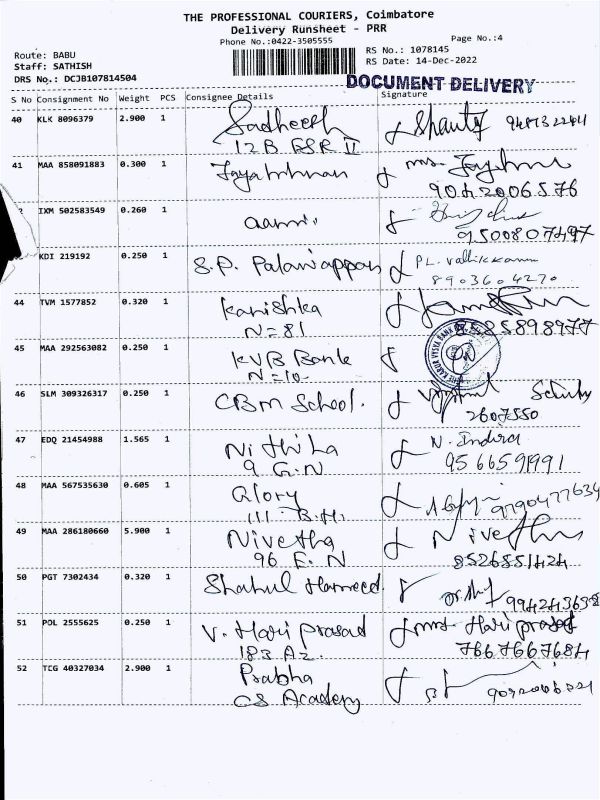 THE PROFESSIONAL COURIERS, Coimbatore
Delivery Runsheet - PRR
Phone No.:0422-3505555
Page No.:4
Route: BABU
RS No.: 1078145
Staff: SATHISH
RS Date: 14-Dec-2022
DRS No.: DCJB107814504
DOCUMENT DELIVERY
S No Consignment No Weight PCS Consignee Details Signature
40 KLK 8096379 2.900 1 Sadheesh
12 B. GSR II
41 MAA 858091883 0.300 1 Mrs.
9042006576
IXM 502583549 0.260 1
9500807497
KDI 219192 0.250 1 S.P. Palaniappan PL. Vallikkannu
8903604270
44 TVM 1577852 0.320 1 Kanishka
N=81
45 MAA 292563082 0.250 1 KVB Bank
N=10-
46 SLM 309326317 0.250 1 CBM School.
2607550
47 EDQ 21454988 1.565 1 Nithila N. Indira
9 G.N 9566591991
48 MAA 567535630 0.605 1 Glory 9790477634
111 B.H.
49 MAA 286180660 5.900 1 Nivetha Nivetha
96 E. N 8526851424
50 PGT 7302434 0.320 1 Shahul Hameed
51 POL 2555625 0.250 1 V. Hari Prasad Mrs. Hari prasad
183 Az. 7667667684
52 TCG 40327034 2.900 1 Prabha
CS Academy